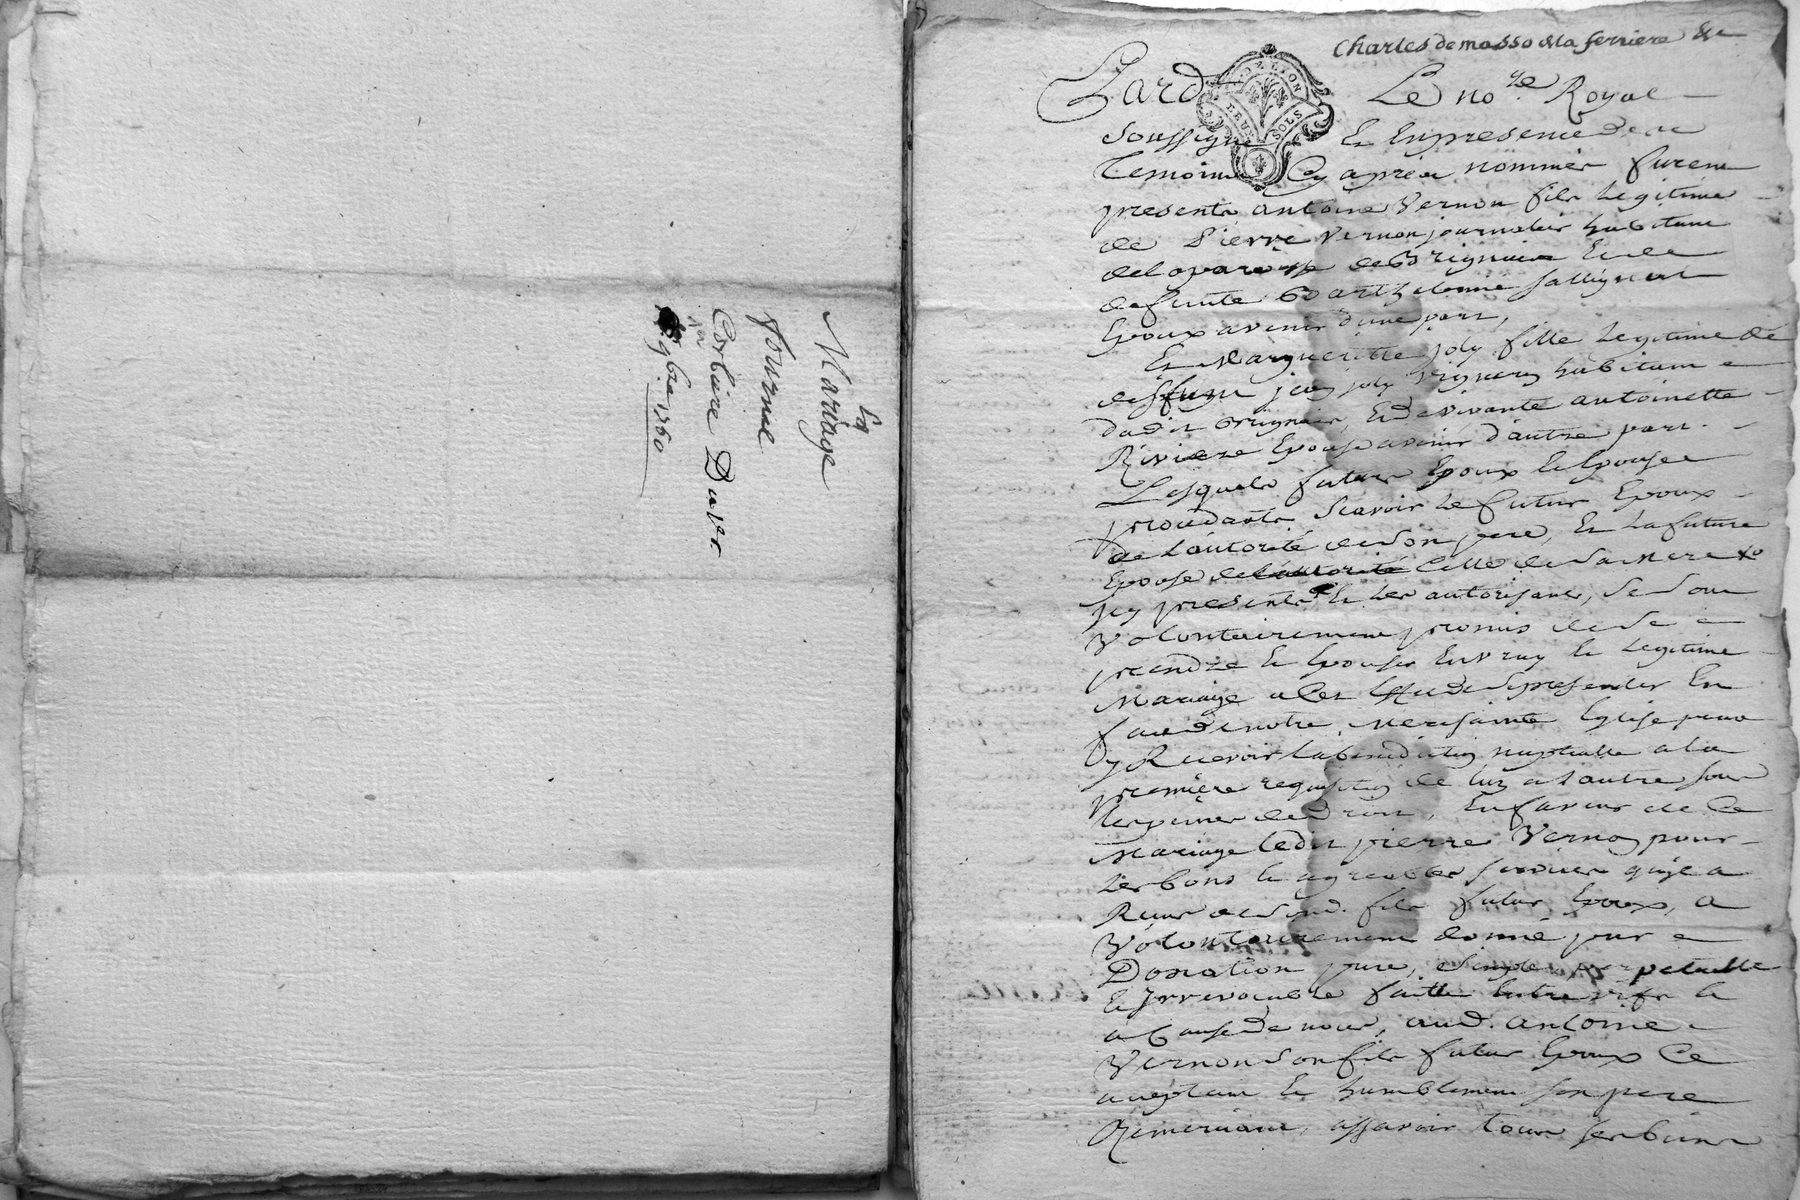 Mariage
En
Fournel
Corbaire Duver
9bre 1760
Charles de masso de la ferriere &c
Pard Le no.re Royal
DE LION
DEUX SOLS
soussigné Et En presence de
Temoins Cy apres nommés furent
presents antoine Vernon fils Legitime
de Pierre Vernon journalier habitant
de la paroisse de Brignais Et de
deffunte Barthelemie
Epoux avenir d'une part,
Et Margueritte joly fille Legitime de
deffunt jean joly Vigneron habitant
dudit Brignais, Et de vivante antoinette
Riviere Epouse avenir d'autre part.
Lesquels futurs Epoux Et Epouse
procedants, Scavoir Le futur Epoux
de L'autorité de son pere, Et La future
Epouse de l'autorité Celle de sa mere
jcy presents Et Les autorisant, Se sont
Volontairement promis de se
prendre Et Epouser En vray Et Legitime
Mariage a Cet Effet de se presenter En
face de notre Mere sainte Eglise pour
y Recevoir La benediction nuptialle a la
premiere requisition de L'un a L'autre sous
Les peines de Droit, En faveur de Ce
Mariage Ledit pierre Vernon pour
Les bons Et agreables services qu'il a
Reçus de Sond. fils futur Epoux, a
Volontairement donné par
Donation pure, Simple perpetuelle
Et Irrevocable faitte Entre vifs Et
a Cause de noces, aud. antoine
Vernon Son fils futur Epoux Ce
acceptant Et humblement Son pere
Remerciant, assavoir tous ses biens